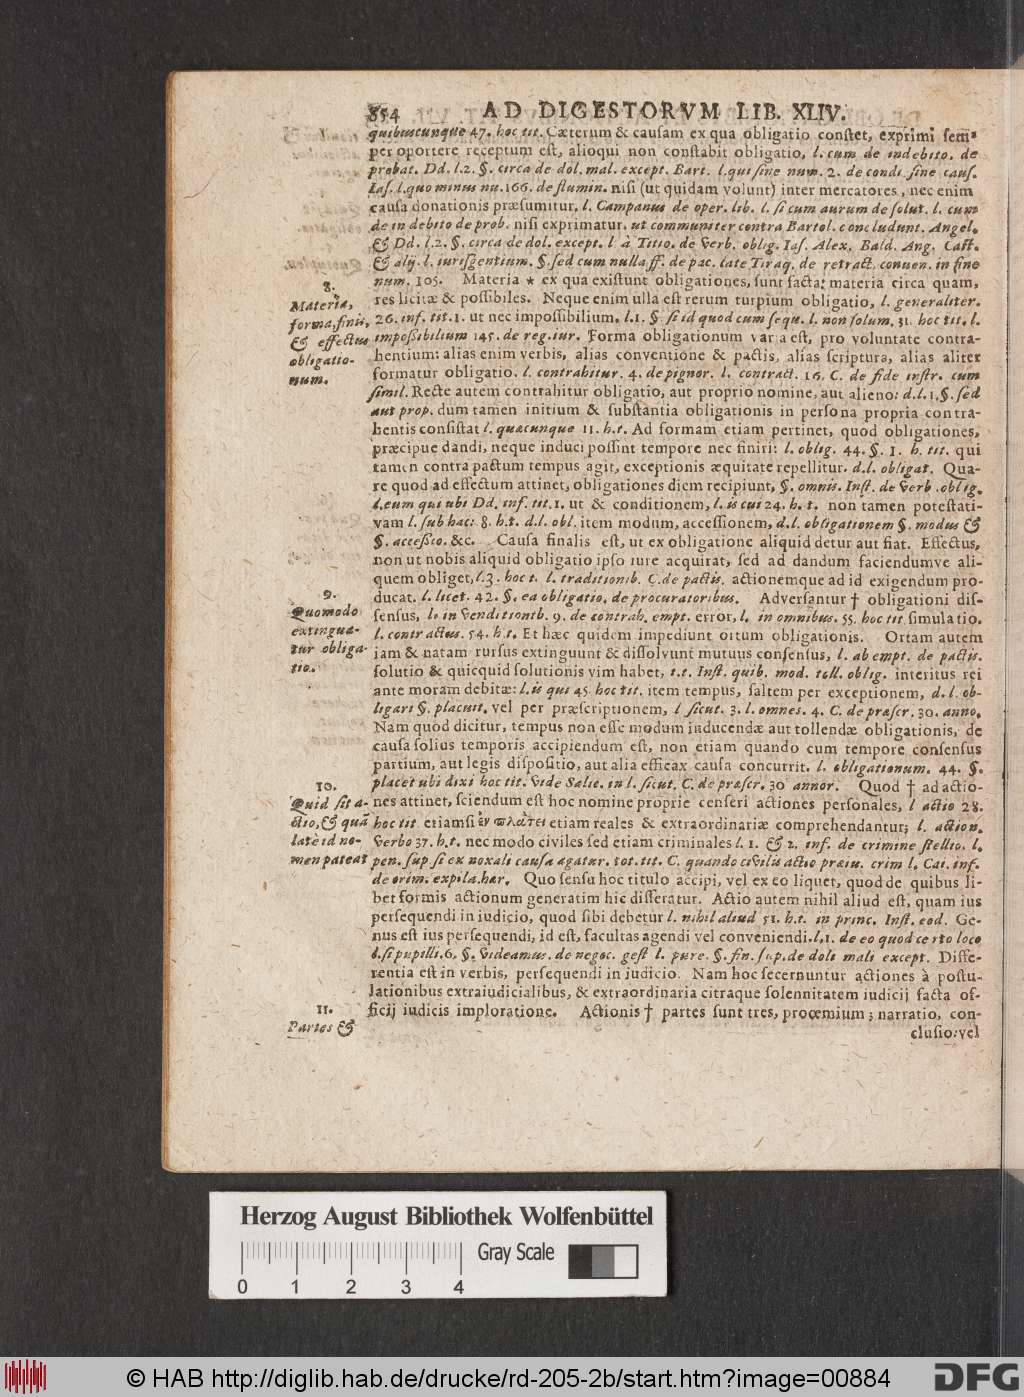 854 AD DIGESTORVM LIB. XLIV.
quibuscunque 47. hoc tit. Cæterum & causam ex qua obligatio constet, exprimi sem-
per oportere receptum est, alioqui non constabit obligatio, l. cum de indebito. de
probat. Dd. l.2. §. circa de dol. mal. except. Bart. l. qui sine num. 2. de condi. sine caus.
Ias. l. quo minus nu. 166. de flumin. nisi (ut quidam volunt) inter mercatores, nec enim
causa donationis præsumitur. l. Campanus de oper. lib. l. si cum aurum de solut. l. cum
de indebito de prob. nisi exprimatur. ut communiter contra Bartol. concludunt. Angel.
& Dd. l.2. §. circa de dol. except. l à Titio. de verb. oblig. Ias. Alex. Bald. Ang. Cast.
& alij. l. iurisgentium. §. sed cum nulla ff. de pac. late Tiraq. de retract. conuen. in fine
num. 105. Materia * ex qua existunt obligationes, sunt facta: materia circa quam,
res licitæ & possibiles. Neque enim ulla est rerum turpium obligatio, l. generaliter.
26. inf. tit. 1. ut nec impossibilium, l.1. § si id quod cum sequ. l. non solum. 31. hoc tit. l.
impossibilium 145. de reg. iur. Forma obligationum varia est, pro voluntate contra-
hentium: alias enim verbis, alias conventione & pactis, alias scriptura, alias aliter
formatur obligatio. l. contrahitur. 4. de pignor. l. contract. 16. C. de fide instr. cum
simil. Recte autem contrahitur obligatio, aut proprio nomine, aut alieno: d.l.1. §. sed
aut prop. dum tamen initium & substantia obligationis in persona propria contra-
hentis consistat l. quæcunque 11. h.t. Ad formam etiam pertinet, quod obligationes,
præcipue dandi, neque induci possint tempore nec finiri: l. oblig. 44. §. 1. h. tit. qui
tamen contra pactum tempus agit, exceptionis æquitate repellitur. d.l. obligat. Qua-
re quod ad effectum attinet, obligationes diem recipiunt, §. omnis. Inst. de verb. oblig.
l. eum qui ubi Dd. inf. tit. 1. ut & conditionem, l. is cui 24. h. t. non tamen potestati-
vam l. sub hac: 8. h.t. d.l. obl. item modum, accessionem, d.l. obligationem §. modus &
§. accessio. &c. Causa finalis est, ut ex obligatione aliquid detur aut fiat. Effectus,
non ut nobis aliquid obligatio ipso iure acquirat, sed ad dandum faciendumve ali-
quem obliget, l.3. hoc t. l. traditionib. C. de pactis. actionemque ad id exigendum pro-
ducat. l. licet. 42. §. ea obligatio. de procuratoribus. Adversantur † obligationi dis-
sensus, l. in venditionib. 9. de contrah. empt. error, l. in omnibus. 55. hoc tit simulatio.
l. contractus. 54. h.t. Et hæc quidem impediunt ortum obligationis. Ortam autem
iam & natam rursus extinguunt & dissolvunt mutuus consensus, l. ab empt. de pactis.
solutio & quicquid solutionis vim habet, t.t. Inst. quib. mod. toll. oblig. interitus rei
ante moram debitæ: l. is qui 45. hoc tit. item tempus, saltem per exceptionem, d. l. ob-
ligari §. placuit. vel per præscriptionem, l sicut. 3. l. omnes. 4. C. de præscr. 30. anno.
Nam quod dicitur, tempus non esse modum inducendæ aut tollendæ obligationis, de
causa solius temporis accipiendum est, non etiam quando cum tempore consensus
partium, aut legis dispositio, aut alia efficax causa concurrit. l. obligationum. 44. §.
placet ubi dixi hoc tit. Vide Salic. in l. sicut. C. de præscr. 30 annor. Quod † ad actio-
nes attinet, sciendum est hoc nomine proprie censeri actiones personales, l actio 28.
hoc tit. etiamsi ἐν πλάτει etiam reales & extraordinariæ comprehendantur; l. action.
verbo 37. h.t. nec modo civiles sed etiam criminales l. 1. & 2. inf. de crimine stellio. l.
pen. sup. si ex noxali causa agatur. tot. tit. C. quando civilis actio præiu. crim l. Cai. inf.
de crim. expila. hær. Quo sensu hoc titulo accipi, vel ex eo liquet, quod de quibus li-
bet formis actionum generatim hic disseratur. Actio autem nihil aliud est, quam ius
persequendi in iudicio, quod sibi debetur l. nihil aliud 51. h.t. in princ. Inst. eod. Ge-
nus est ius persequendi, id est, facultas agendi vel conveniendi. l.1. de eo quod certo loco
l. si pupilli. 6. §. videamus. de negoc. gest l. pure. §. fin. sup. de doli mali except. Diffe-
rentia est in verbis, persequendi in iudicio. Nam hoc secernuntur actiones à postu-
lationibus extraiudicialibus, & extraordinaria citraque solennitatem iudicij facta of-
ficij iudicis imploratione. Actionis † partes sunt tres, proœmium; narratio, con-
clusio: vel
8.
Materia,
forma, finis,
& effectus
obligatio-
num.
9.
Quomodo
extingua-
tur obliga-
tio.
10.
Quid sit a-
ctio, & quã
late id no-
men pateat
11.
Partes &
Herzog August Bibliothek Wolfenbüttel
Gray Scale
0 1 2 3 4
© HAB http://diglib.hab.de/drucke/rd-205-2b/start.htm?image=00884
DFG